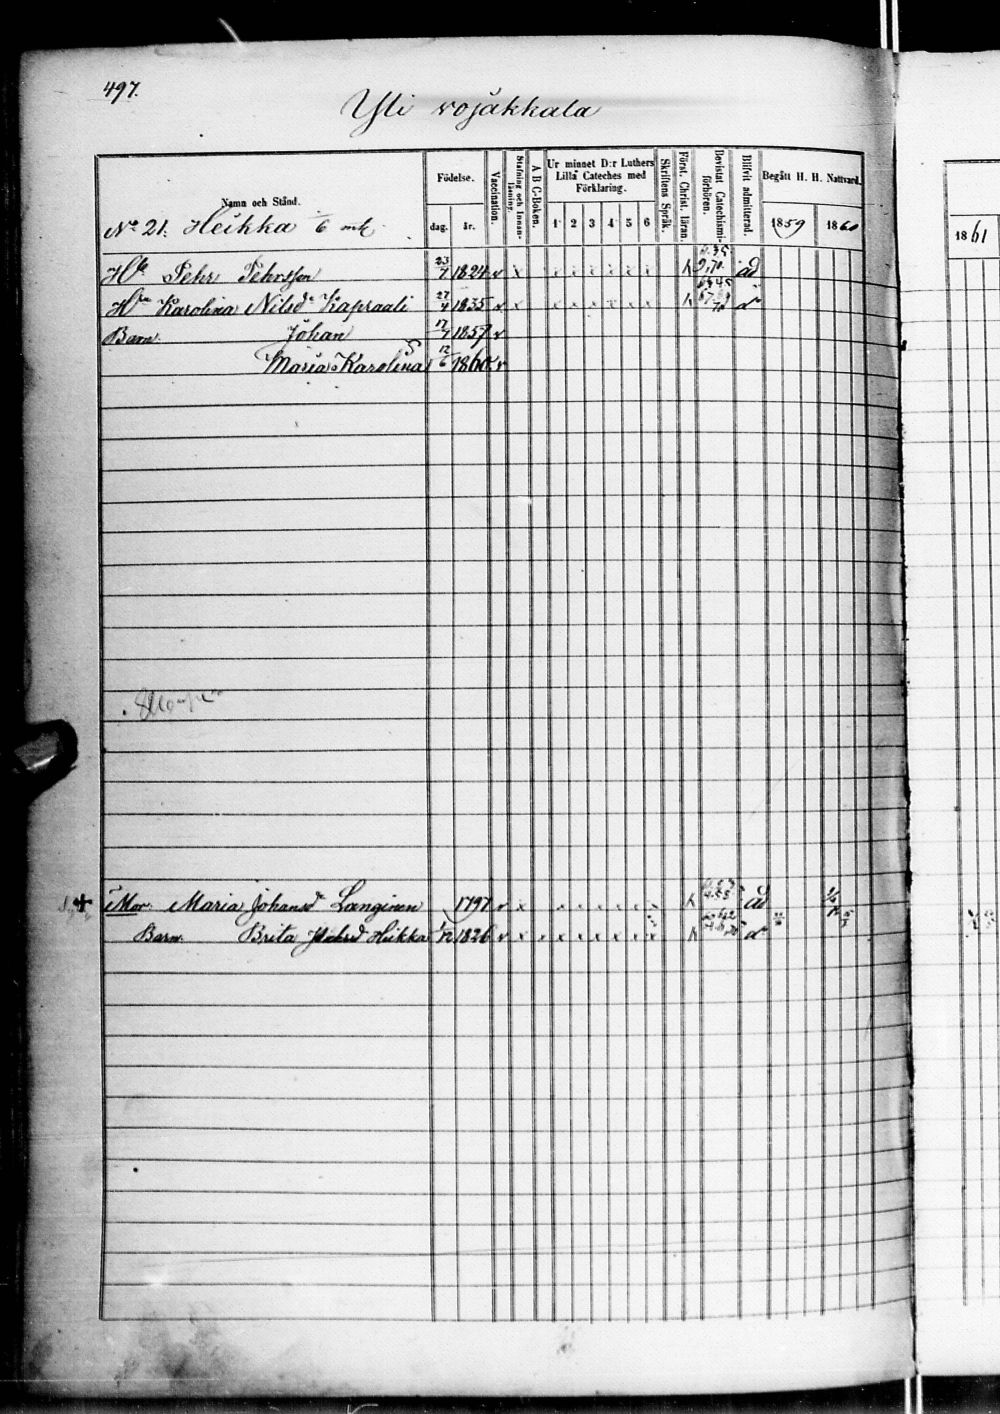 497.
Yli vojakkala
Namn och Stånd.
Födelse.
dag.
år.
Vaccination.
Stafning och Innanläsning.
A B C-Boken.
Ur minnet D:r Luthers Lilla Cateches med Förklaring.
1 2 3 4 5 6
Skriftens Språk.
Först. Christ. läran.
Bevistat Catechismiförhören.
Blifvit admitterad.
Begått H. H. Nattvard.
1859 1860
1861
No 21. Heikka 6 mtl
Hde Pehr Pehrsson 23/7 1824 v x k ad
Hru Karolina Nilsd Kapraali 27/4 1835 v x k
Barn. Johan 17/7 1857 v
Maria Karolina 12/6 1860 v
Mor. Maria Johansd Længinen 1797 v x k ad
Barn. Brita Pehrsd Heikka 1826 v x k